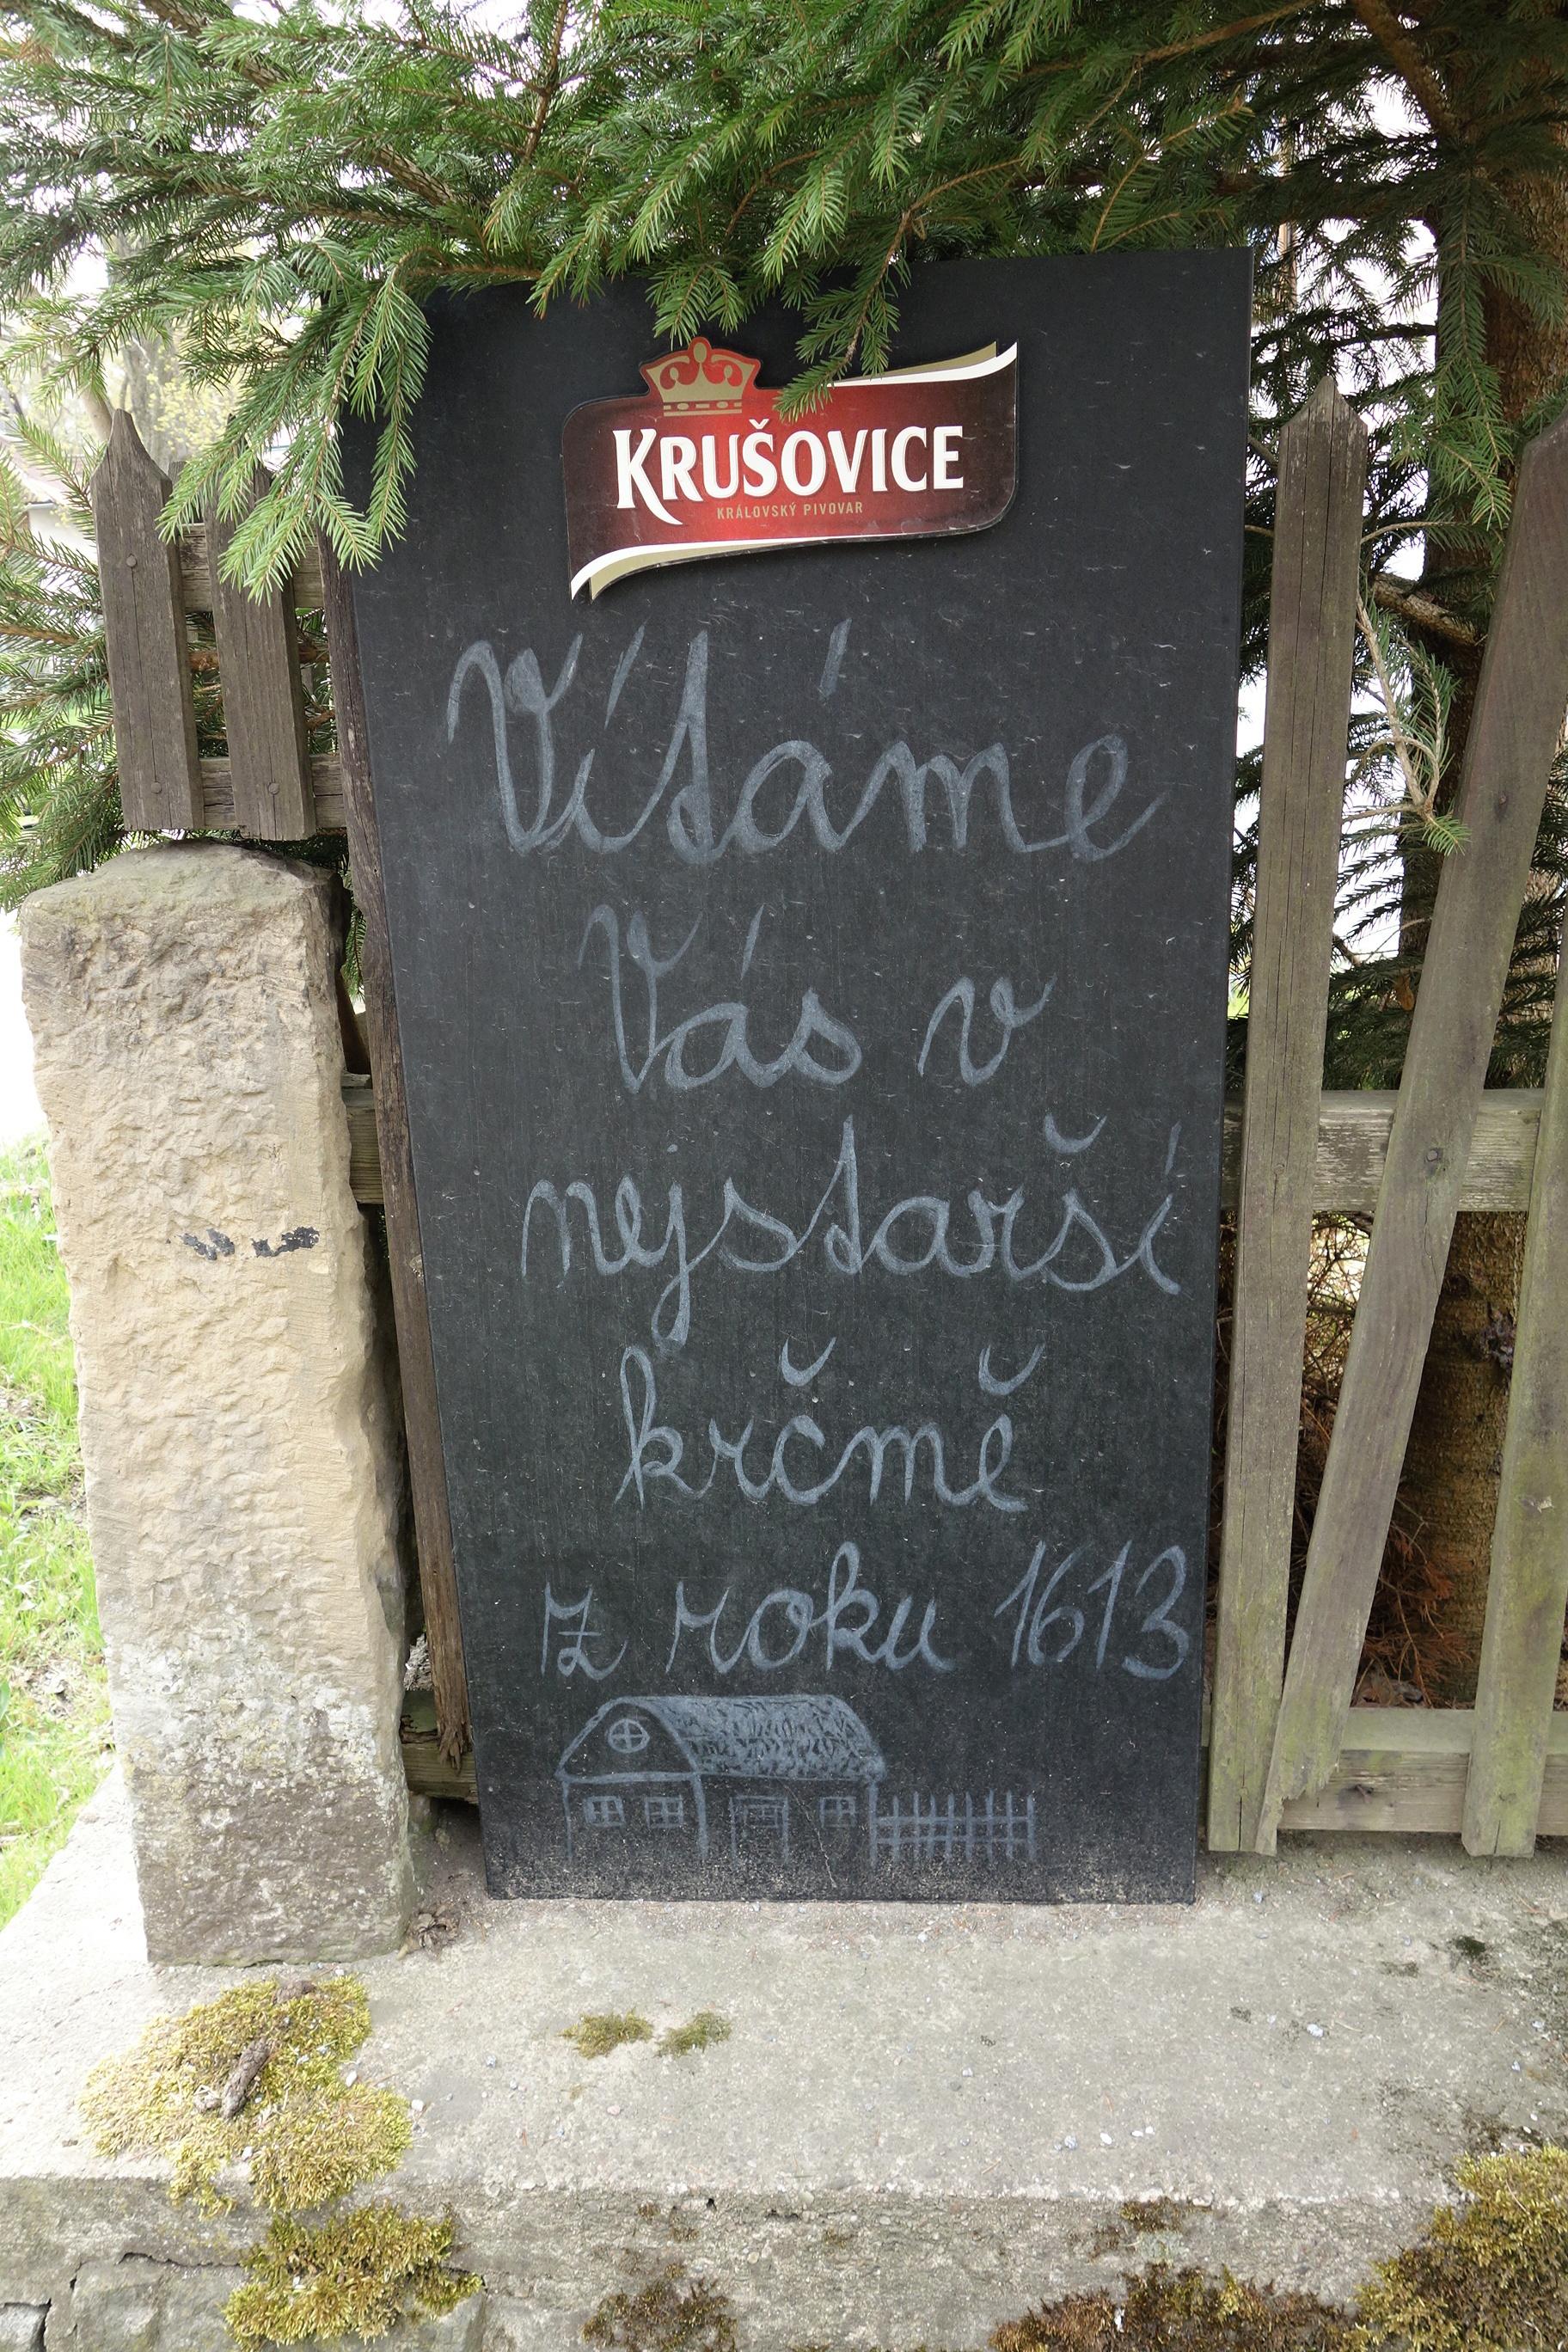 KRUŠOVICE
KRÁLOVSKÝ PIVOVAR
Vítáme
Vás v
nejstarší
krčmě
z roku 1613